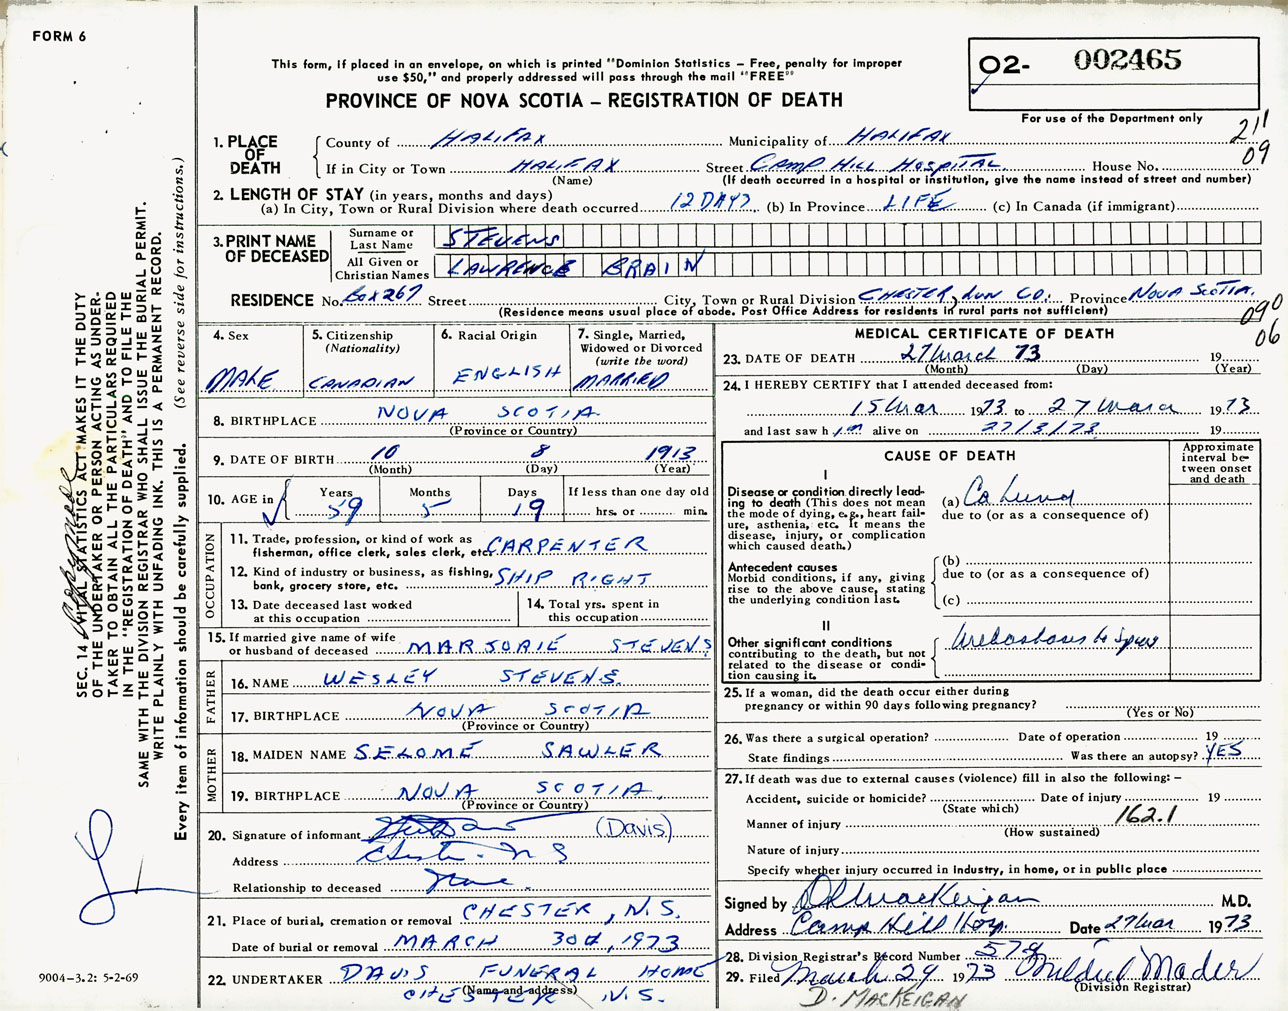 FORM 6
This form, if placed in an envelope, on which is printed "Dominion Statistics – Free, penalty for improper
use $50," and properly addressed will pass through the mail "FREE"
PROVINCE OF NOVA SCOTIA – REGISTRATION OF DEATH
02- 002465
For use of the Department only
211
09
1. PLACE OF DEATH
County of HALIFAX Municipality of HALIFAX
If in City or Town HALIFAX Street CAMP HILL HOSPITAL House No.
(Name) (If death occurred in a hospital or institution, give the name instead of street and number)
2. LENGTH OF STAY (in years, months and days)
(a) In City, Town or Rural Division where death occurred 12 DAYS (b) In Province LIFE (c) In Canada (if immigrant)
3. PRINT NAME OF DECEASED
Surname or Last Name STEVENS
All Given or Christian Names LAWRENCE BRAIN
RESIDENCE No. Box 267 Street City, Town or Rural Division CHESTER, LUN CO. Province NOVA SCOTIA.
(Residence means usual place of abode. Post Office Address for residents in rural parts not sufficient)
090
06
4. Sex MALE
5. Citizenship (Nationality) CANADIAN
6. Racial Origin ENGLISH
7. Single, Married, Widowed or Divorced (write the word) MARRIED
8. BIRTHPLACE NOVA SCOTIA
(Province or Country)
9. DATE OF BIRTH 10 8 1913
(Month) (Day) (Year)
10. AGE in Years 59 Months 5 Days 19 If less than one day old hrs. or min.
OCCUPATION
11. Trade, profession, or kind of work as fisherman, office clerk, sales clerk, etc. CARPENTER
12. Kind of industry or business, as fishing, bank, grocery store, etc. SHIP RIGHT
13. Date deceased last worked at this occupation
14. Total yrs. spent in this occupation
15. If married give name of wife or husband of deceased MARJORIE STEVENS
FATHER
16. NAME WESLEY STEVENS.
17. BIRTHPLACE NOVA SCOTIA
(Province or Country)
MOTHER
18. MAIDEN NAME SELOME SAWLER
19. BIRTHPLACE NOVA SCOTIA.
(Province or Country)
20. Signature of informant (Davis)
Address Chester N S
Relationship to deceased None.
21. Place of burial, cremation or removal CHESTER, N.S.
Date of burial or removal MARCH 30d, 1973
22. UNDERTAKER DAVIS FUNERAL HOME
(Name and address)
CHESTER N.S.
MEDICAL CERTIFICATE OF DEATH
23. DATE OF DEATH 27 March 73 19
(Month) (Day) (Year)
24. I HEREBY CERTIFY that I attended deceased from:
15 Mar 1973 to 27 March 1973
and last saw h im alive on 27/3/73 19
CAUSE OF DEATH
Approximate interval between onset and death
I
Disease or condition directly leading to death (This does not mean the mode of dying, e.g., heart failure, asthenia, etc. It means the disease, injury, or complication which caused death.)
(a) Ca Lung
due to (or as a consequence of)
Antecedent causes
Morbid conditions, if any, giving rise to the above cause, stating the underlying condition last.
(b)
due to (or as a consequence of)
(c)
II
Other significant conditions contributing to the death, but not related to the disease or condition causing it.
Metastases to Spine
25. If a woman, did the death occur either during pregnancy or within 90 days following pregnancy?
(Yes or No)
26. Was there a surgical operation? Date of operation 19
State findings Was there an autopsy? YES
27. If death was due to external causes (violence) fill in also the following: –
Accident, suicide or homicide? Date of injury 19
(State which)
162.1
Manner of injury
(How sustained)
Nature of injury
Specify whether injury occurred in industry, in home, or in public place
Signed by D MacKeigan M.D.
Address Camp Hill Hosp. Date 27 Mar 1973
28. Division Registrar's Record Number 579
29. Filed March 29 1973 Mildred Mader
(Division Registrar)
D. MACKEIGAN
SEC. 14 VITAL STATISTICS ACT MAKES IT THE DUTY
OF THE UNDERTAKER OR PERSON ACTING AS UNDER-
TAKER TO OBTAIN ALL THE PARTICULARS REQUIRED
IN THE "REGISTRATION OF DEATH" AND TO FILE THE
SAME WITH THE DIVISION REGISTRAR WHO SHALL ISSUE THE BURIAL PERMIT.
WRITE PLAINLY WITH UNFADING INK. THIS IS A PERMANENT RECORD.
Every item of information should be carefully supplied. (See reverse side for instructions.)
9004-3.2: 5-2-69